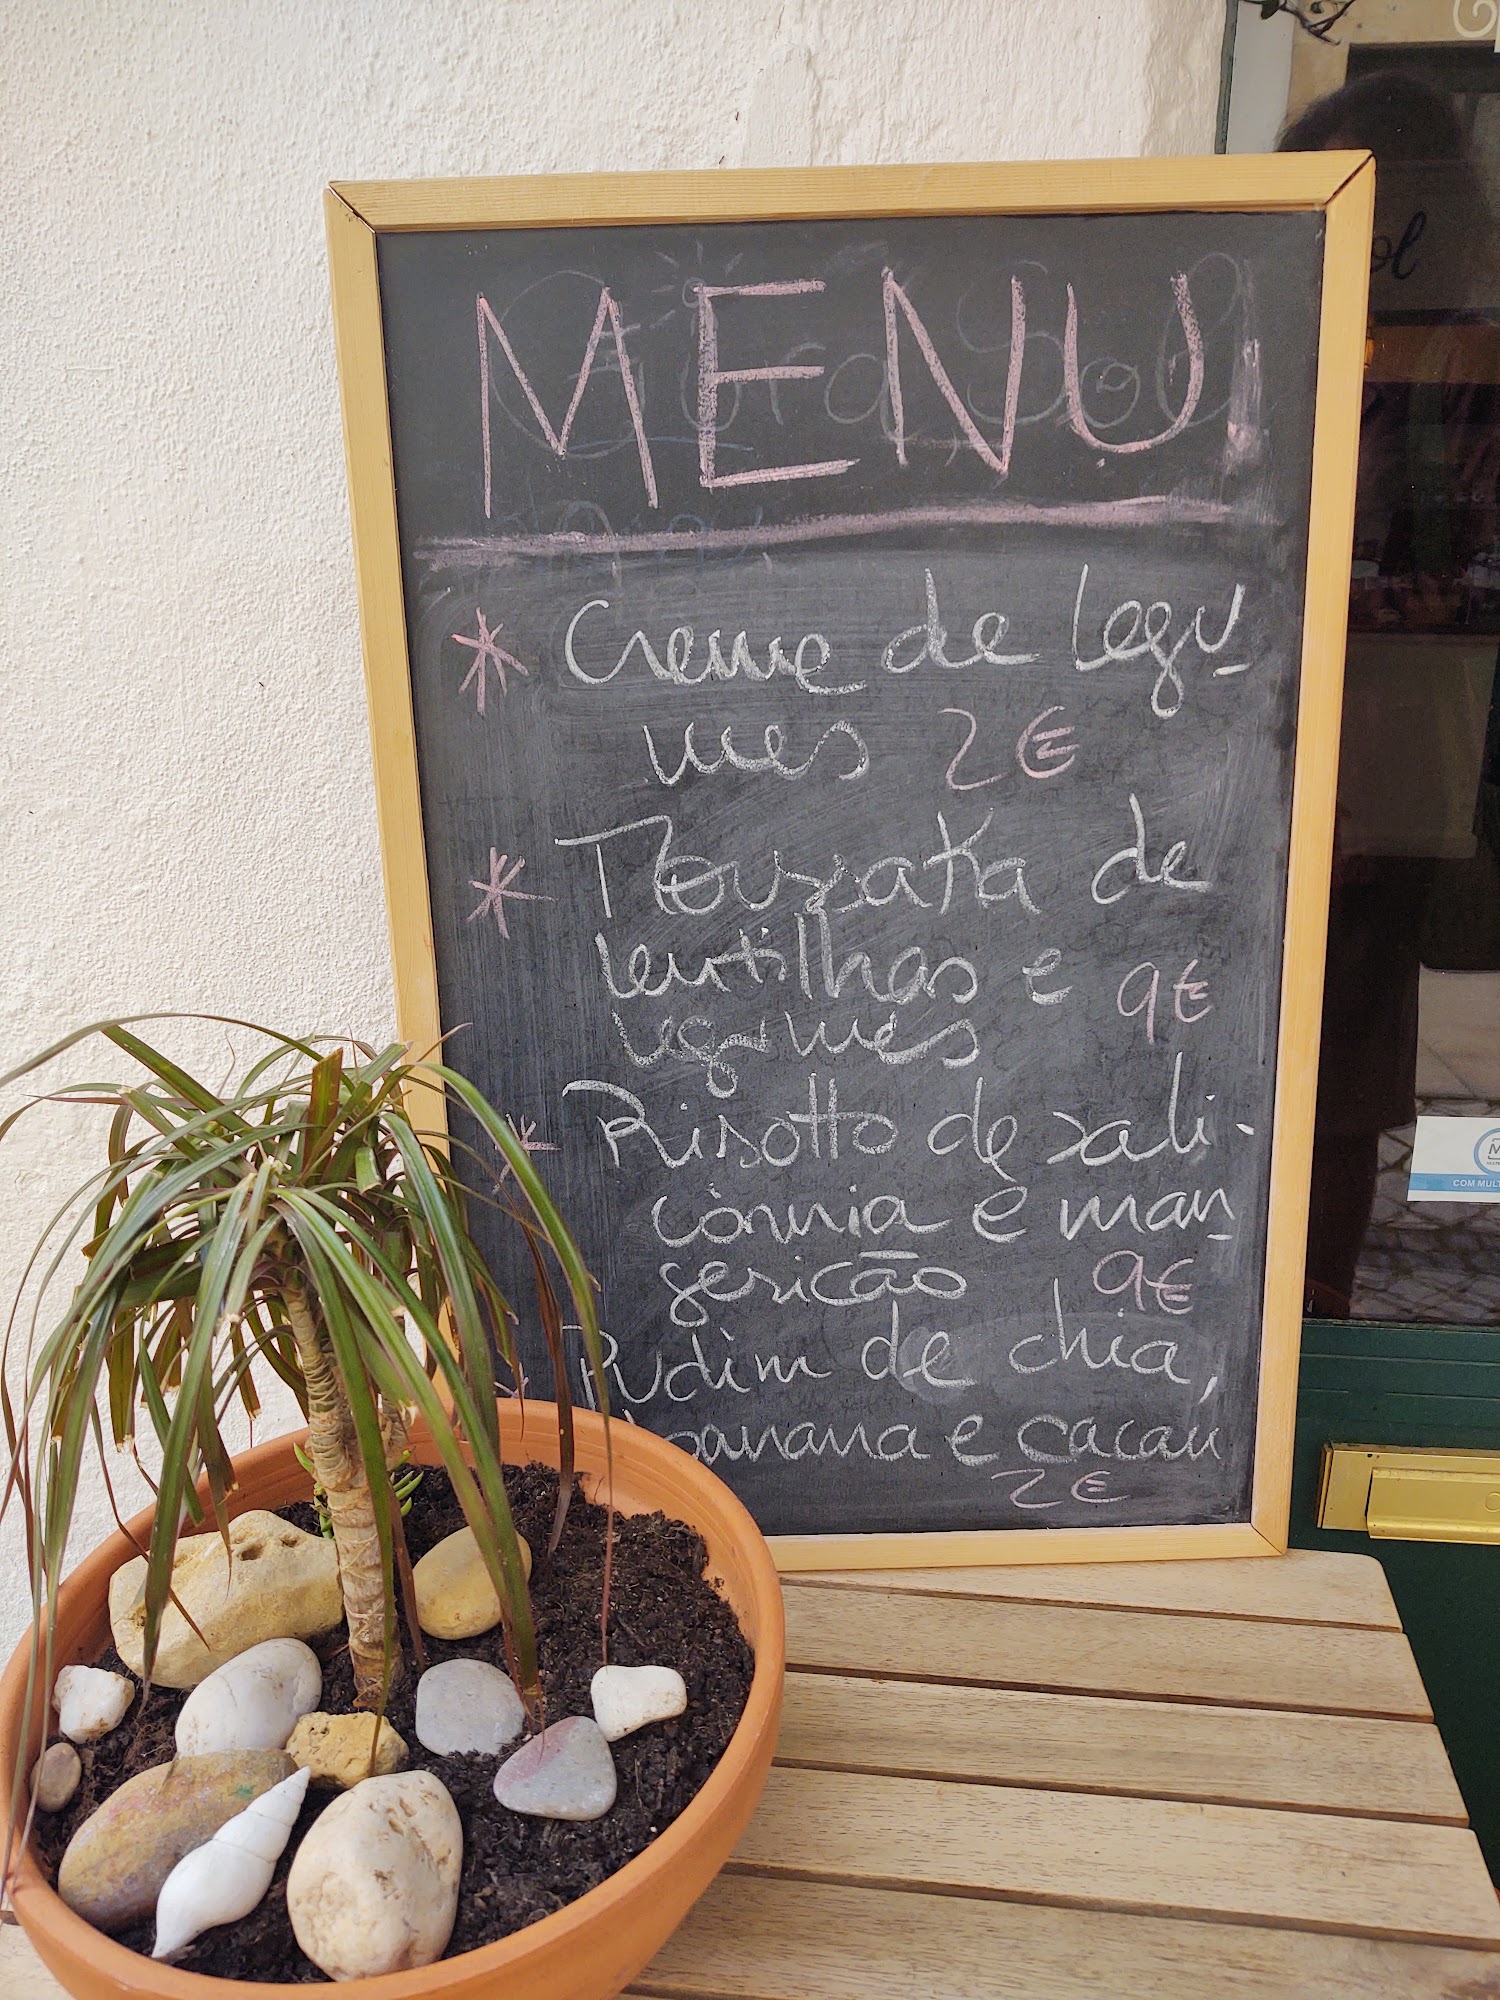 MENU
* Creme de legu-
mes 2€
* Moussaka de
lentilhas e 9€
legumes
* Risotto de sali-
córnia e man-
jericão 9€
Pudim de chia,
banana e cacau
2€
COM MULT